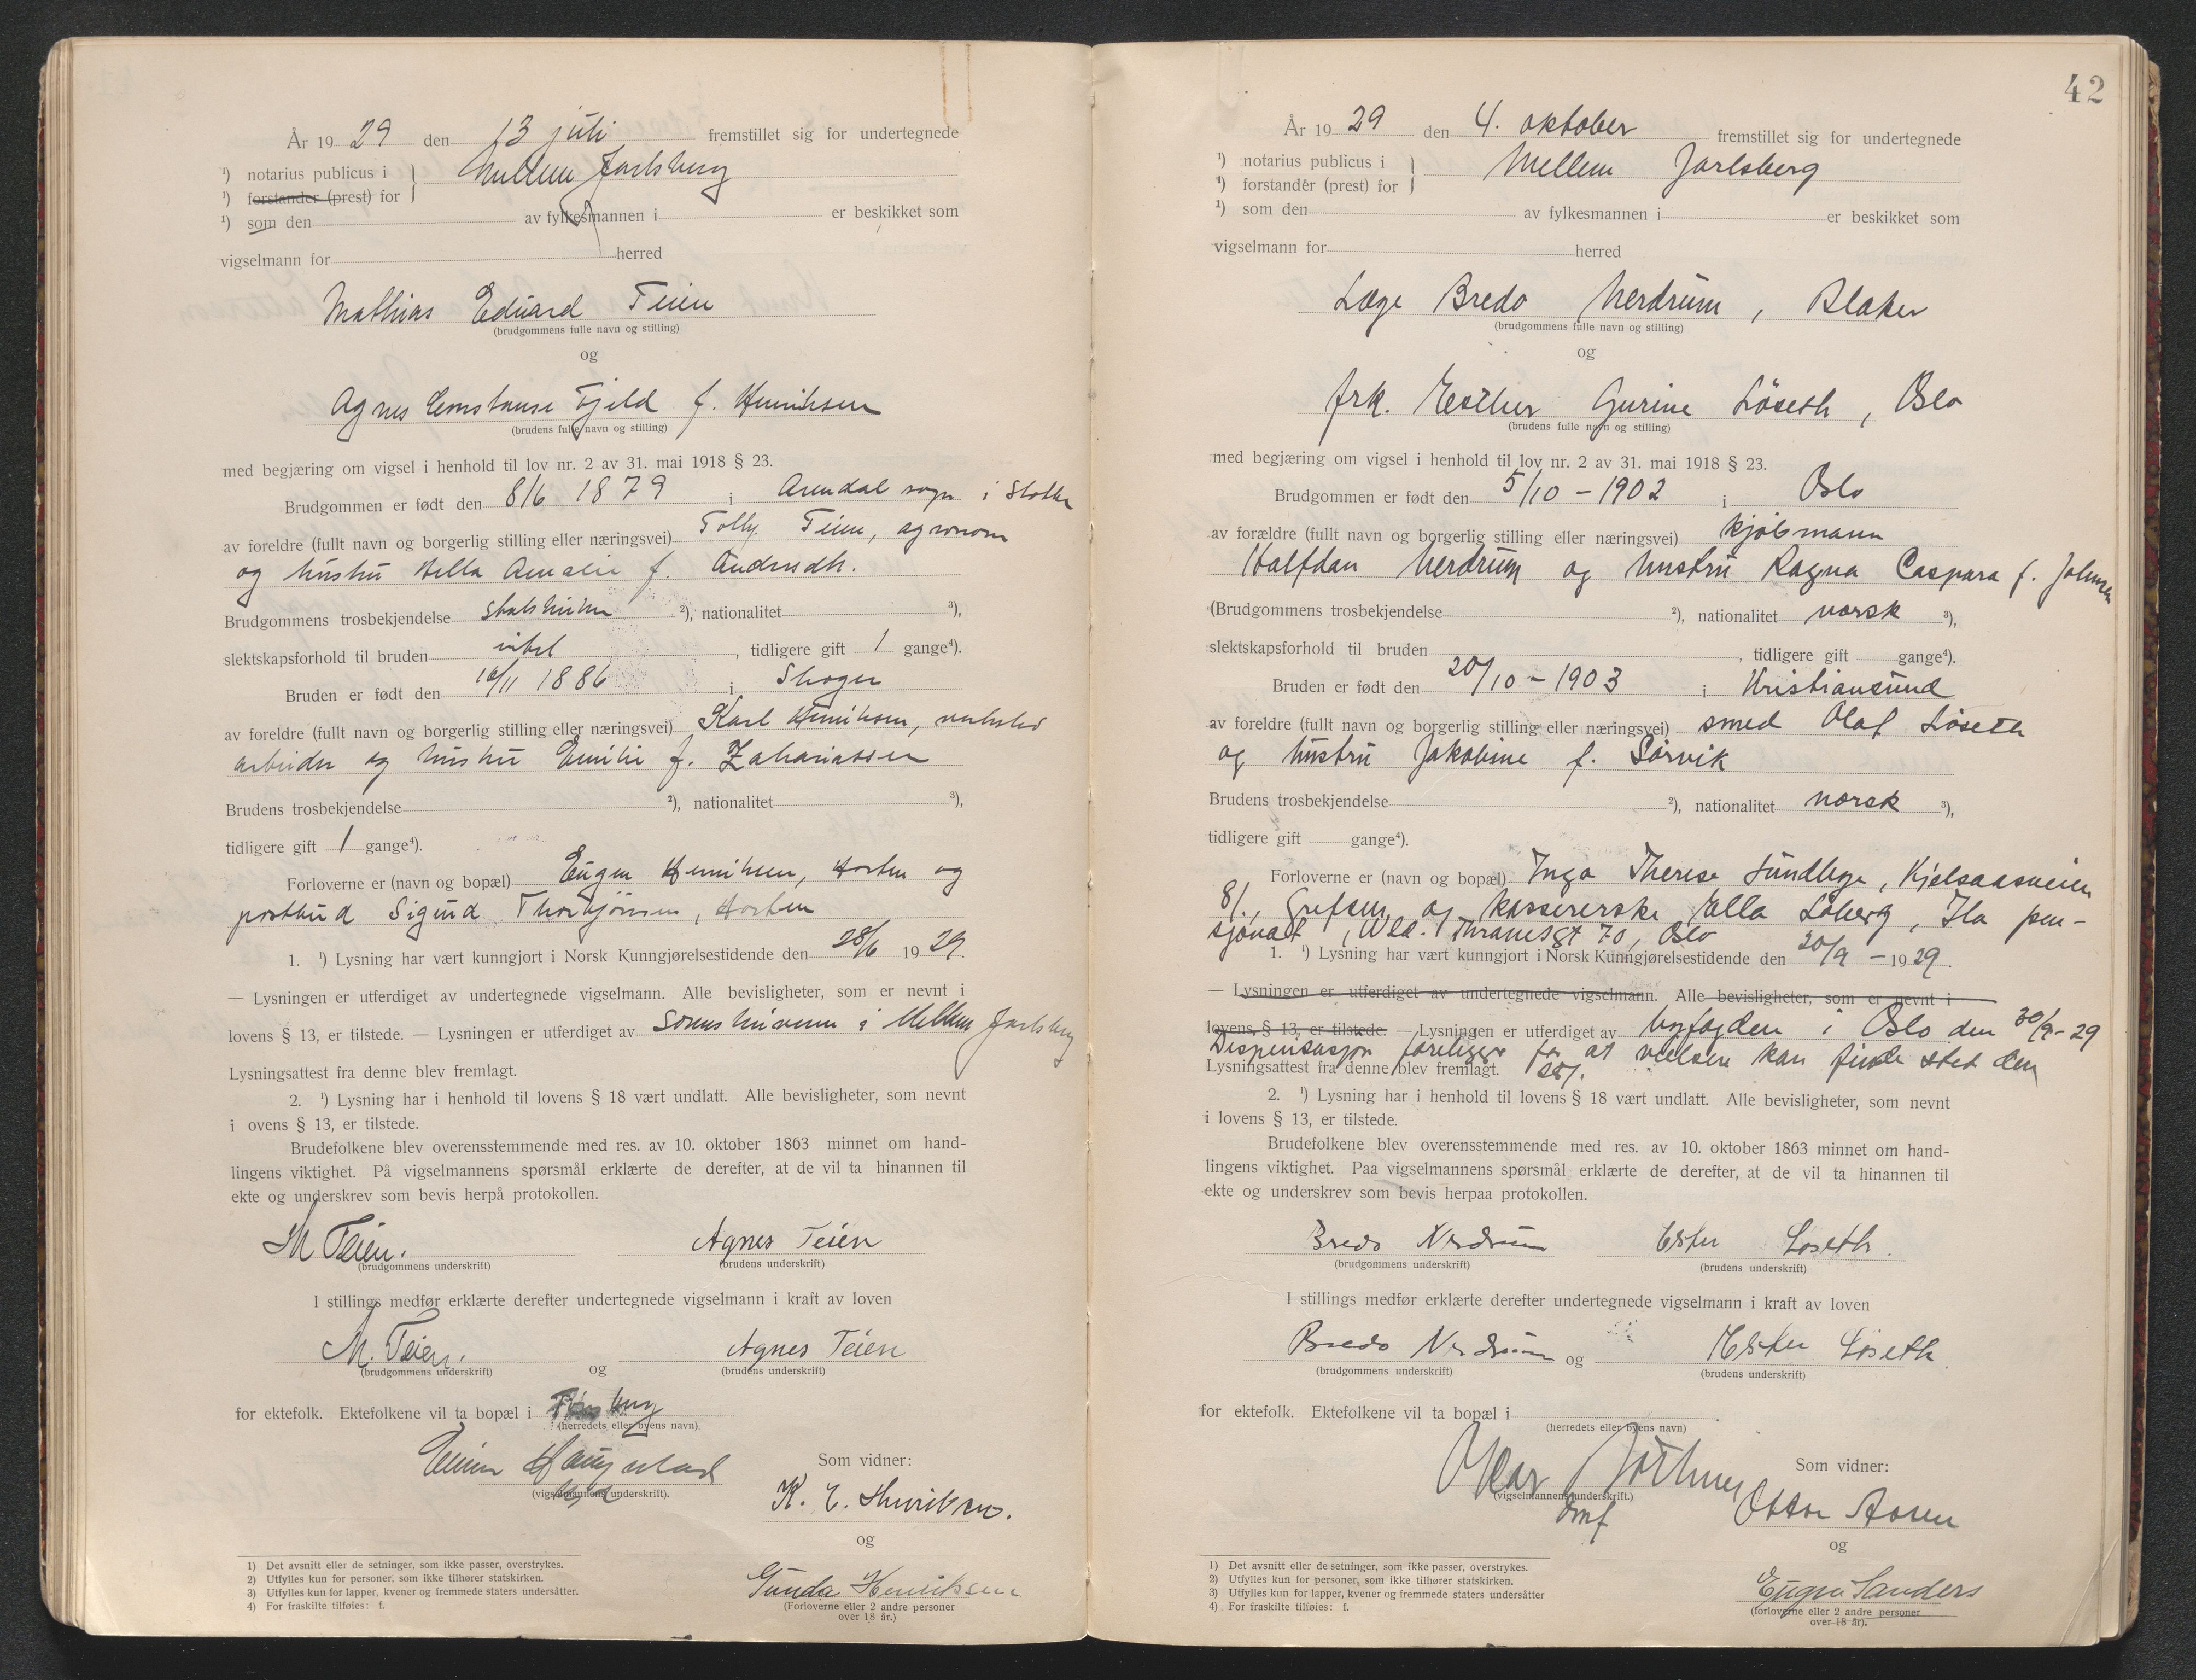 År 19 29 den 13 juli fremstillet sig for undertegnede
¹) notarius publicus i } Mellem Jarlsberg
¹) forstander (prest) for
¹) som den av fylkesmannen i er beskikket som
vigselmann for herred
Mathias Eduard Teien
(brudgommens fulle navn og stilling)
og
Agnes Constanse Fjeld f. Henriksen
(brudens fulle navn og stilling)
med begjæring om vigsel i henhold til lov nr. 2 av 31. mai 1918 § 23.
Brudgommen er født den 8/6 1879 i Arendal sogn i
av foreldre (fullt navn og borgerlig stilling eller næringsvei) Teien, agronom
og hustru Amalie f.
Brudgommens trosbekjendelse ²), nationalitet ³),
slektskapsforhold til bruden intet, tidligere gift 1 gange⁴).
Bruden er født den 16/11 1886 i Skoger
av foreldre (fullt navn og borgerlig stilling eller næringsvei) Karl Henriksen,
arbeider og hustru Emilie f. Zahariassen
Brudens trosbekjendelse ²), nationalitet ³),
tidligere gift 1 gange⁴).
Forloverne er (navn og bopæl) Eugen Henriksen, Horten og
postbud Sigurd Thorbjörnsen, Horten
1. ¹) Lysning har vært kunngjort i Norsk Kunngjørelsestidende den 28/6 19 29.
— Lysningen er utferdiget av undertegnede vigselmann. Alle bevisligheter, som er nevnt i
lovens § 13, er tilstede. — Lysningen er utferdiget av Sorenskriveren i Mellem Jarlsberg
Lysningsattest fra denne blev fremlagt.
2. ¹) Lysning har i henhold til lovens § 18 vært undlatt. Alle bevisligheter, som nevnt
i ovens § 13, er tilstede.
Brudefolkene blev overensstemmende med res. av 10. oktober 1863 minnet om hand-
lingens viktighet. På vigselmannens spørsmål erklærte de derefter, at de vil ta hinannen til
ekte og underskrev som bevis herpå protokollen.
M Teien. Agnes Teien
(brudgommens underskrift) (brudens underskrift)
I stillings medfør erklærte derefter undertegnede vigselmann i kraft av loven
M. Teien. og Agnes Teien
(brudgommens underskrift) (brudens underskrift)
for ektefolk. Ektefolkene vil ta bopæl i
(herredets eller byens navn)
Einar Haugestad
(vigselmannens underskrift).
Som vidner:
K. E. Henriksen.
og
Gunda Henriksen
(Forloverne eller 2 andre personer
over 18 år.)
1) Det avsnitt eller de setninger, som ikke passer, overstrykes.
2) Utfylles kun for personer, som ikke tilhører statskirken.
3) Utfylles kun for lapper, kvener og fremmede staters undersåtter.
4) For fraskilte tilføies: f.
42
År 19 29 den 4. oktober fremstillet sig for undertegnede
¹) notarius publicus i } Mellem Jarlsberg
¹) forstander (prest) for
¹) som den av fylkesmannen i er beskikket som
vigselmann for herred
Læge Bredo Nerdrum, Blaker
(brudgommens fulle navn og stilling)
og
frk. Esther Gurine Löseth, Oslo
(brudens fulle navn og stilling)
med begjæring om vigsel i henhold til lov nr. 2 av 31. mai 1918 § 23.
Brudgommen er født den 5/10 - 1902 i Oslo
av forældre (fullt navn og borgerlig stilling eller næringsvei) kjøbmann
Halfdan Nerdrum og hustru Ragna Caspara f. Johnsen
(Brudgommens trosbekjendelse ²), nationalitet norsk ³),
slektskapsforhold til bruden, tidligere gift gange⁴).
Bruden er født den 20/10 - 1903 i Kristiansund
av foreldre (fullt navn og borgerlig stilling eller næringsvei) smed Olaf Löseth
og hustru Jakobine f. Sörvik
Brudens trosbekjendelse ²), nationalitet norsk ³),
tidligere gift gange⁴).
Forloverne er (navn og bopæl) Inga Therese, Kjelsaasveien
81., Grefsen og kassererske Ella Loberg, Ila pen-
sjonat, Wld. Thranesgt 70, Oslo
1. ¹) Lysning har vært kunngjort i Norsk Kunngjørelsestidende den 20/9 - 19 29.
— Lysningen er utferdiget av undertegnede vigselmann. Alle bevisligheter, som er nevnt i
lovens § 13, er tilstede. — Lysningen er utferdiget av byfogden i Oslo den 30/9-29
Dispensasjon foreligger for at vielsen kan finde sted den
Lysningsattest fra denne blev fremlagt.
2. ¹) Lysning har i henhold til lovens § 18 vært undlatt. Alle bevisligheter, som nevnt
i lovens § 13, er tilstede.
Brudefolkene blev overensstemmende med res. av 10. oktober 1863 minnet om hand-
lingens viktighet. Paa vigselmannens spørsmål erklærte de derefter, at de vil ta hinannen til
ekte og underskrev som bevis herpaa protokollen.
Bredo Nerdrum Ester Löseth.
(brudgommens underskrift) (brudens underskrift)
I stillings medfør erklærte derefter undertegnede vigselmann i kraft av loven
Bredo Nerdrum og Ester Löseth.
(brudgommens underskrift) (brudens underskrift)
for ektefolk. Ektefolkene vil ta bopæl i
(herredets eller byens navn)
Oskar
(vigselmannens underskrift.)
Som vidner:
og
Sanders
(forloverne eller 2 andre personer
over 18 år).
1) Det avsnitt eller de setninger, som ikke passer, overstrykes.
2) Utfylles kun for personer, som ikke tilhører statskirken.
3) Utfylles kun for lapper, kvener og fremmede staters undersåtter
4) For fraskilte tilføies: f.